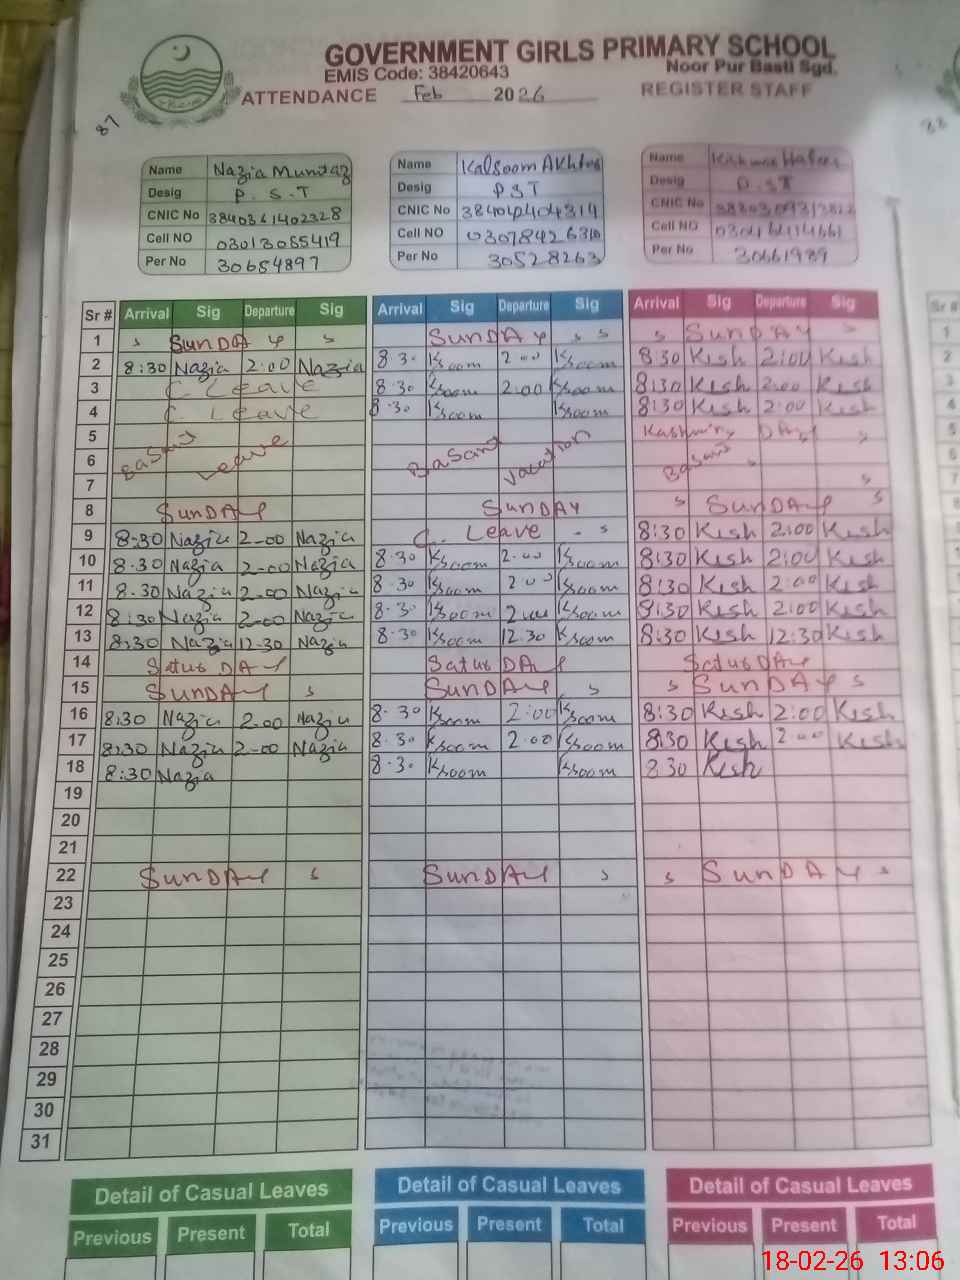 GOVERNMENT GIRLS PRIMARY SCHOOL
EMIS Code: 38420643 Noor Pur Basti Sgd.
ATTENDANCE Feb 2026 REGISTER STAFF
87
88
Name Nazia Mumtaz
Desig P.S.T
CNIC No 3840361402328
Cell NO 03013055419
Per No 30654897
Name Kalsoom Akhtar
Desig PST
CNIC No
Cell NO
Per No 30528263
Name
Desig P.ST
CNIC No
Cell NO
Per No 30661989
Sr # Arrival Sig Departure Sig Arrival Sig Departure Sig Arrival Sig Departure Sig Sr #
1 s SUNDAY s SUNDAY s s s SUNDAY s 1
2 8:30 Nazia 2:00 Nazia 8 30 Ksoom 2 00 Ksoom 8:30 Kish 2:00 Kish 2
3 C. Leave 8.30 Ksoom 2.00 Ksoom 8:30 Kish 2:00 Kish 3
4 C. Leave 8.30 Ksoom Ksoom 8:30 Kish 2:00 Kish 4
5 Kashmir DAY s 5
6 Basant Leave Basant Vacation Basant 6
7 s 7
8 SUNDAY SUNDAY s SUNDAY s 8
9 8-30 Nazia 2-00 Nazia C. Leave - s 8:30 Kish 2:00 Kish
10 8.30 Nazia 2-00 Nazia 8.30 Ksoom 2.00 Ksoom 8:30 Kish 2:00 Kish
11 8.30 Nazia 2-00 Nazia 8.30 Ksoom 2 00 Ksoom 8:30 Kish 2:00 Kish
12 8:30 Nazia 2-00 Nazia 8.30 Ksoom 2.00 Ksoom 8:30 Kish 2:00 Kish
13 8:30 Nazia 12-30 Nazia 8.30 Ksoom 12.30 Ksoom 8:30 Kish 12:30 Kish
14 Satur DAY Satur DAY Satur DAY
15 SUNDAY s SUNDAY s s SUNDAY s
16 8:30 Nazia 2-00 Nazia 8.30 Ksoom 2:00 Ksoom 8:30 Kish 2:00 Kish
17 8:30 Nazia 2-00 Nazia 8.30 Ksoom 2.00 Ksoom 8:30 Kish 2:00 Kish
18 8:30 Nazia 8.30 Ksoom Ksoom 8 30 Kish
19
20
21
22 SUNDAY s SUNDAY s s SUNDAY s
23
24
25
26
27
28
29
30
31
Detail of Casual Leaves Detail of Casual Leaves Detail of Casual Leaves
Previous Present Total Previous Present Total Previous Present Total
18-02-26 13:06